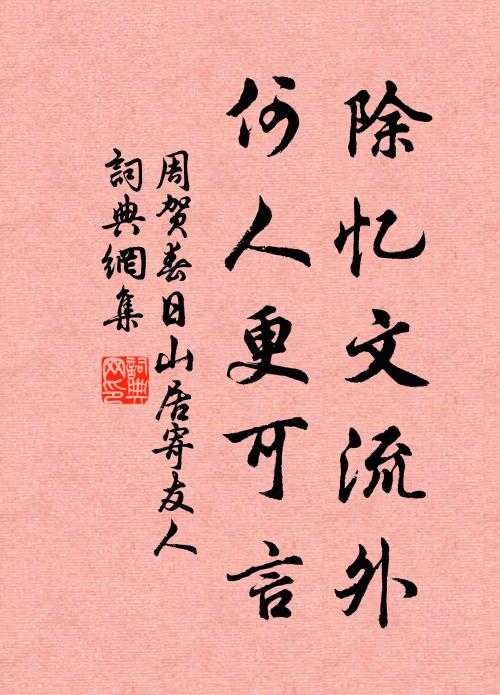 除忆文流外
何人更可言
周贺春日山居寄友人
詞典網集
詞典网印